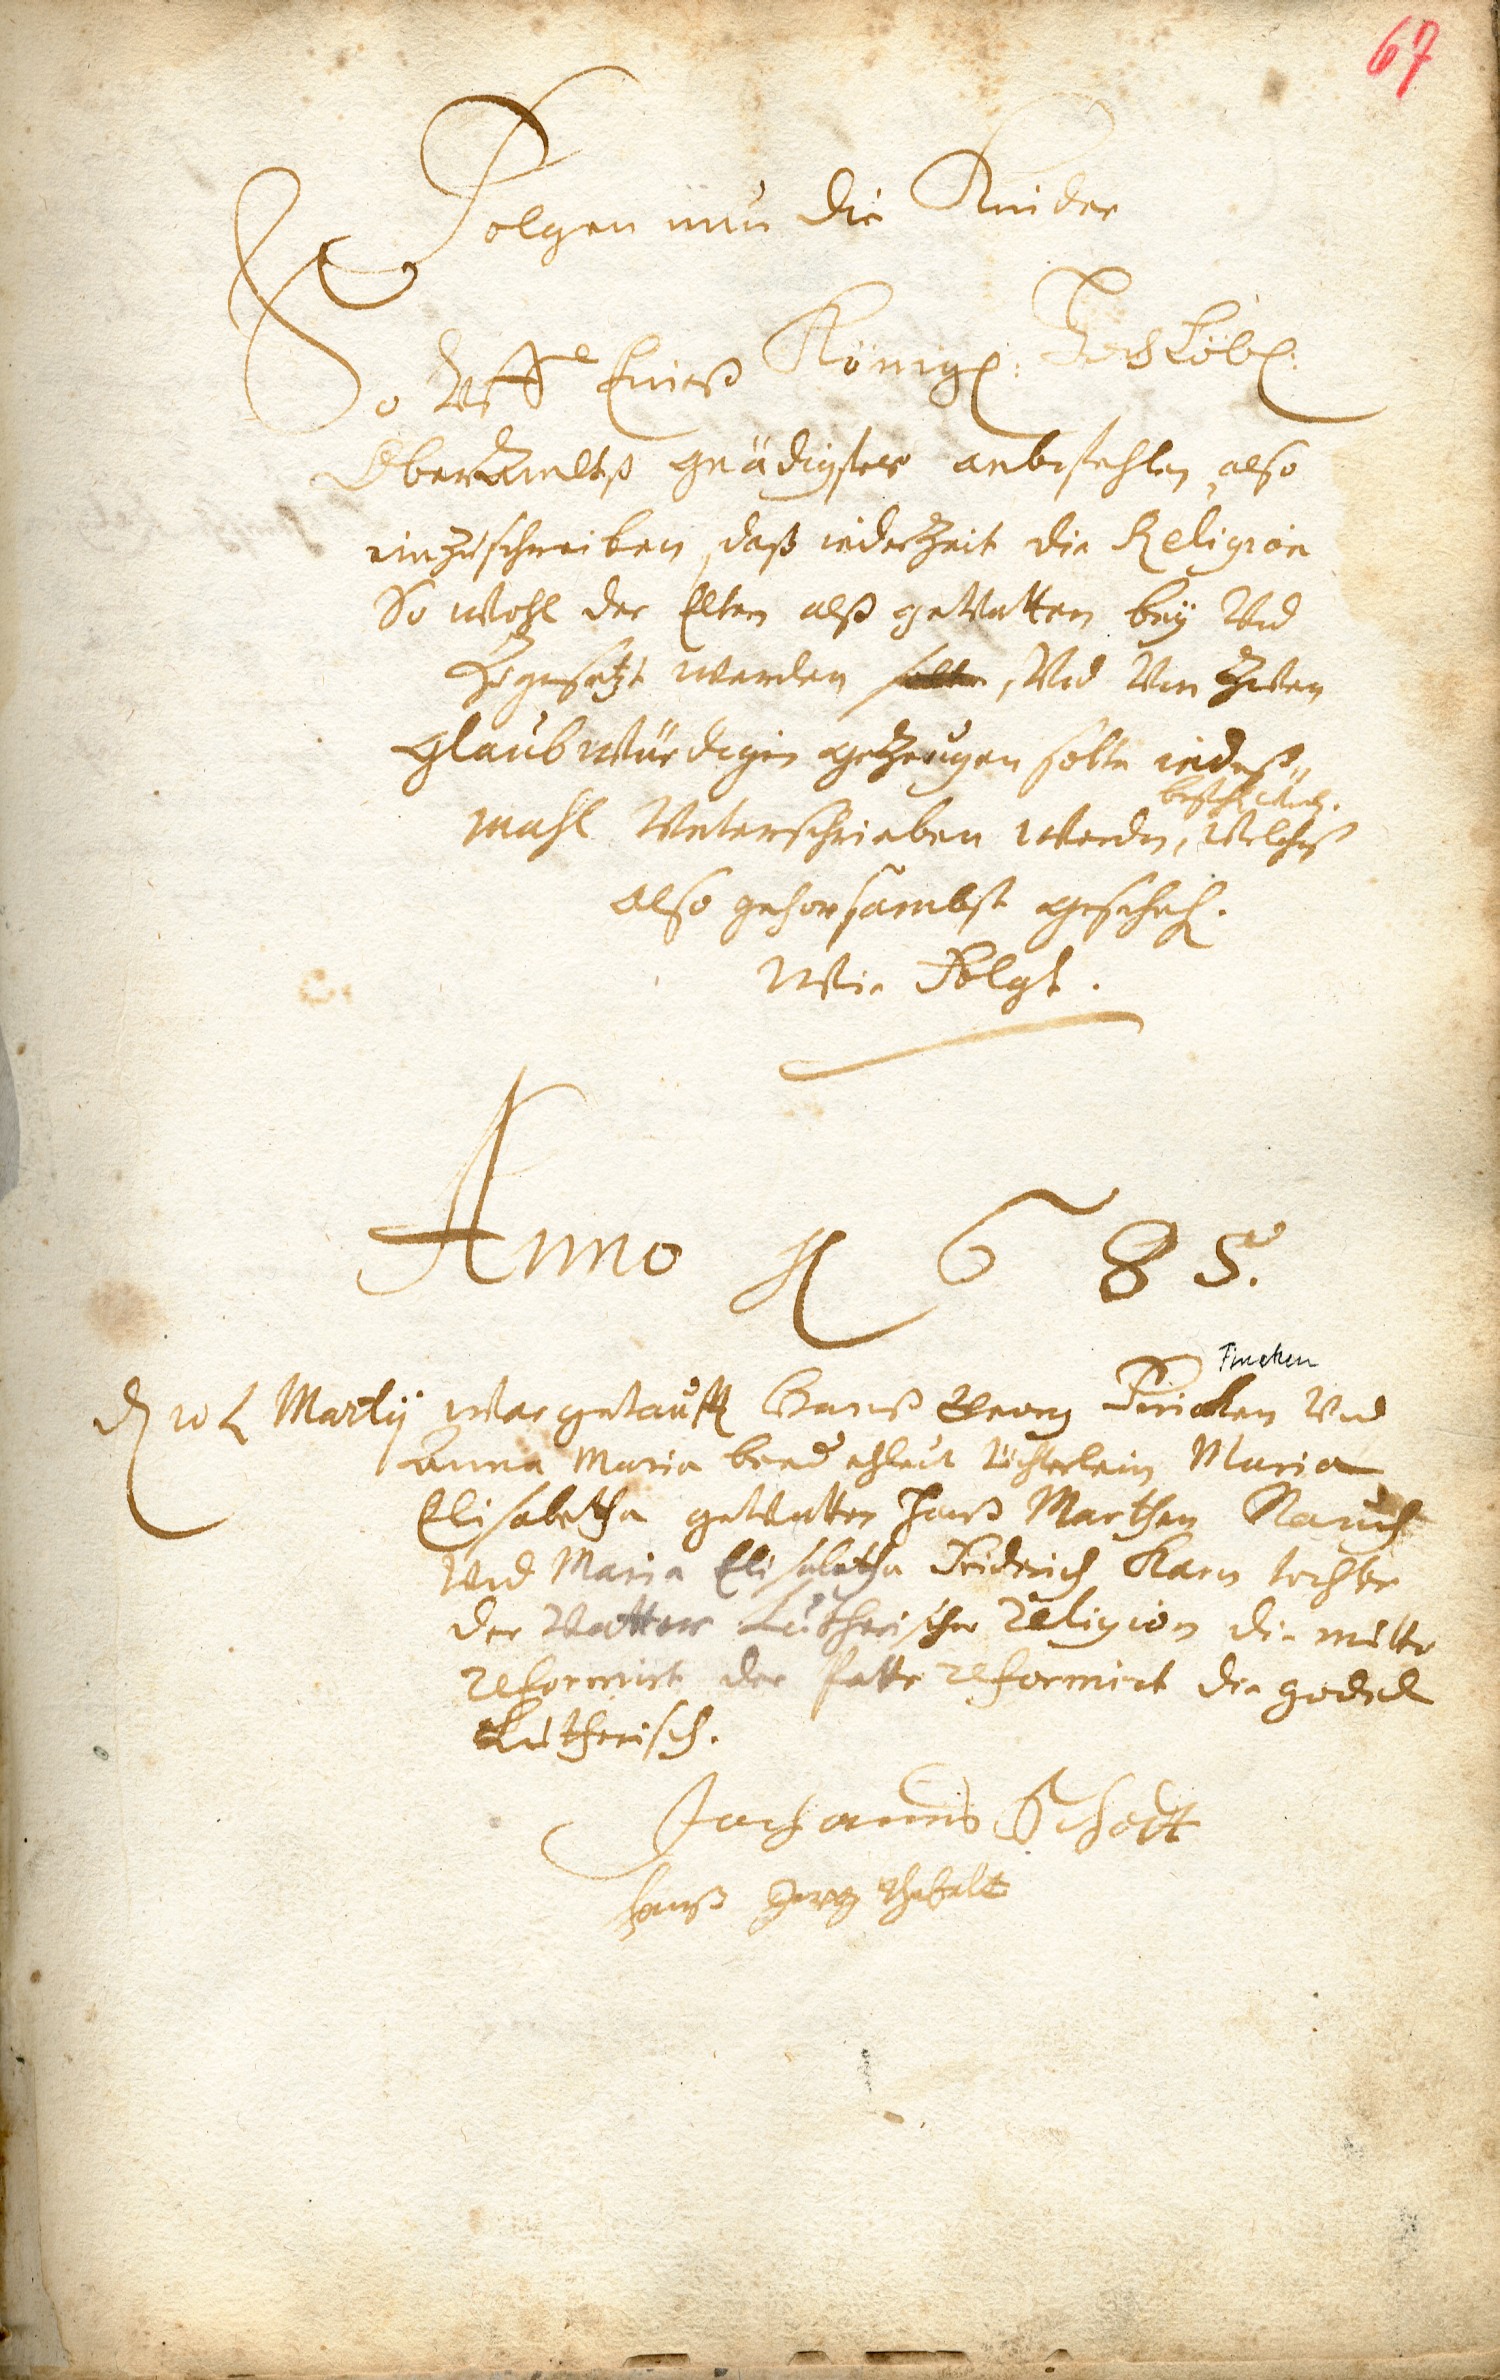 67
Folgen nun die Kinder
So Uff Eineß Königl: HochLöbl:
OberAmbtß gnädigster anbefehlen, also
einzuschreiben, daß iederZeit die Religion
So wohl der Elten alß geVattern bey Und
Zugesetzt werden solte, Und Von Zwen
Glaubwürdigen geZeugen solte iedeß„
mahl Unterschrieben werdn, Welcheß
also gehorsambst gescheh.
Wie Folgt.
Anno 1685.
Fincken
Martÿ war getaufft Hanß Georg Fincken Und
Anna Maria beed ehleut töchterlein Maria
Elisabetha geVatter Hanß Marthen Rauch
Und Maria Elisabetha Fridrich Karn tochter
der Vatter Lutherischer religion die mutter
reformirt der Patte reformirt die godel
Lutherisch.
Johannes Schott
Hanß Jerg